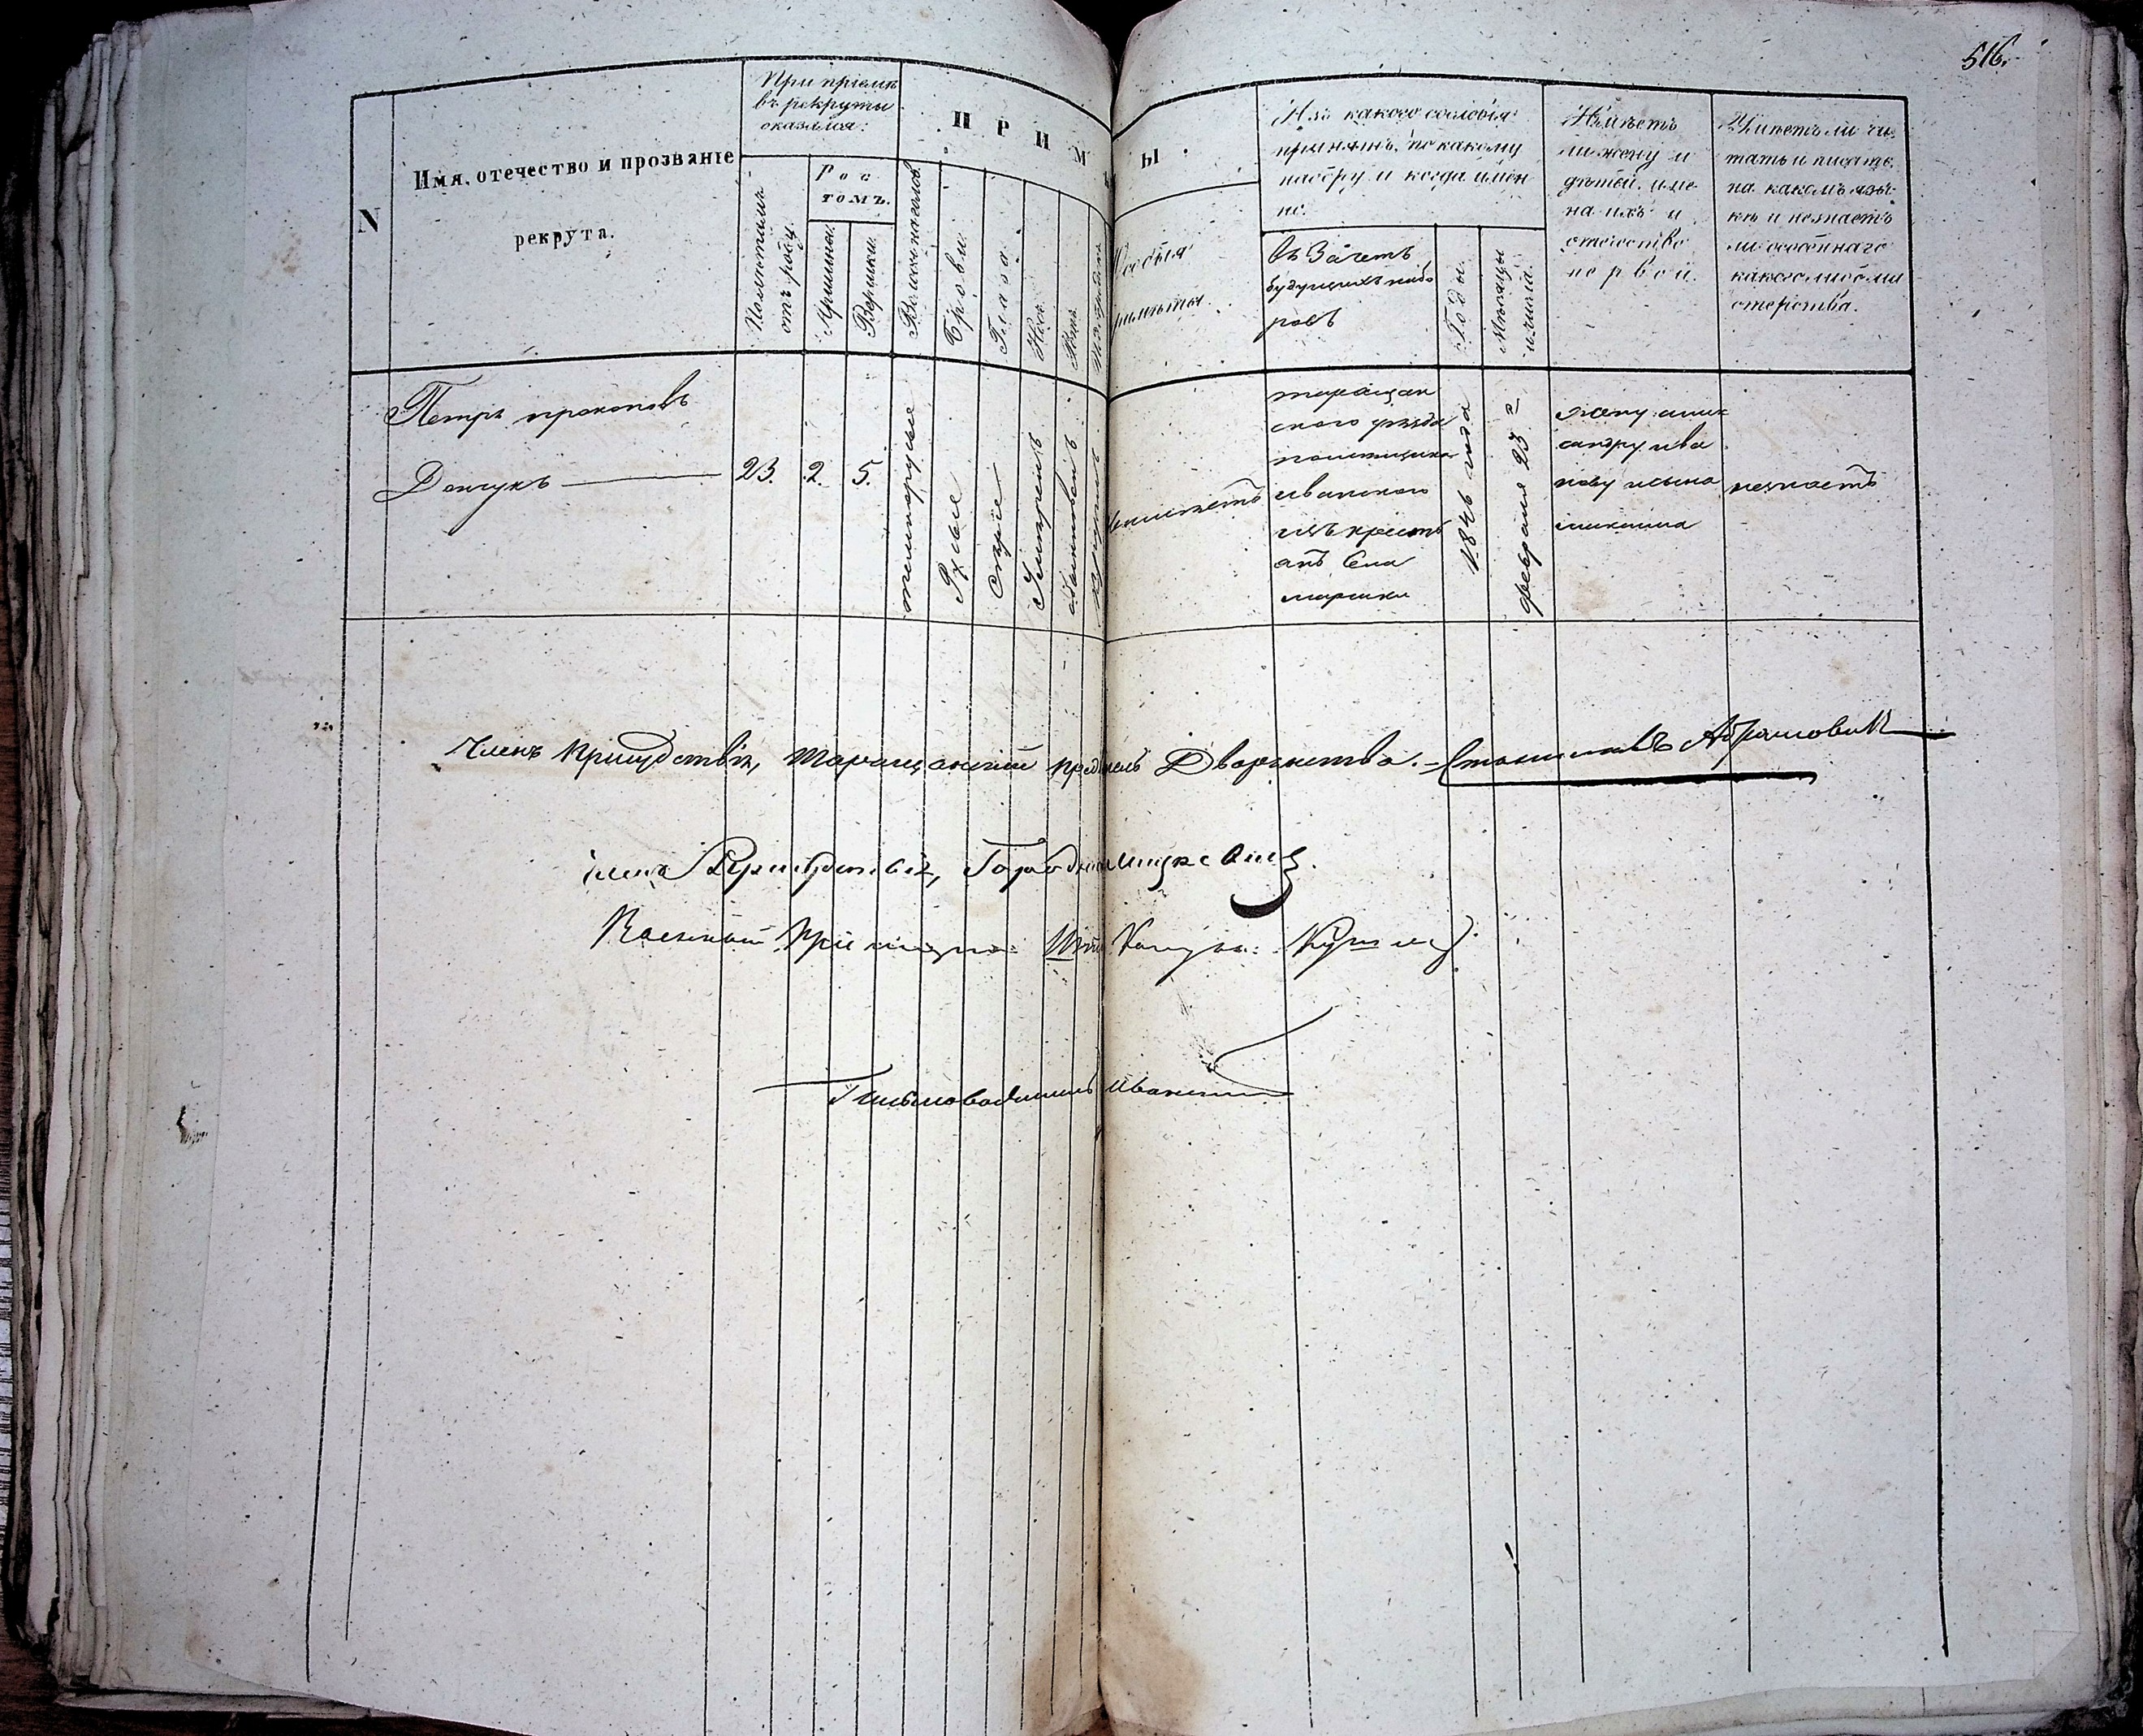 516.
N
Имя, отечество и прозваніе
рекрута.
При пріемѣ
въ рекруты
оказался:
Сколько лѣтъ
отъ роду.
Рос
томъ.
Аршины.
Вершки.
ПРИМ
ѣты.
Волосы на головѣ.
Брови.
Глаза.
Носъ.
Ротъ.
Подбородокъ
Особыя
примѣты.
Изъ какого сословія
принятъ, по какому
набору и когда имен
но.
Въ Зачетъ
будущихъ набо
ровъ
Годы.
Мѣсяцы
и числа.
Имѣетъ
ли жену и
дѣтей, име
на ихъ и
отечество
первой.
Умѣетъ ли чи
тать и писать,
на какомъ язы
кѣ и не знаетъ
ли особеннаго
какого либо ма
стерства.
Петръ прокоповъ
Демчукъ
23.
2.
5.
темнорусые
Русые
Сѣрые
Умѣренъ
обыкновенъ
круглый
неимѣетъ
таращан
ского уѣзда
помещика
ивански
изъ крестъ
янъ Села
1846 года
февраля 23 г
жену алек
сандру ива
нову и сына
незнаетъ
Членъ Присудствія, Таращанский пред-тель Дворянства. Станиславъ Абрамовичъ
членъ Присудствія, Городничій
Военный Приемщикъ Шта Капитанъ
Письмоводитель